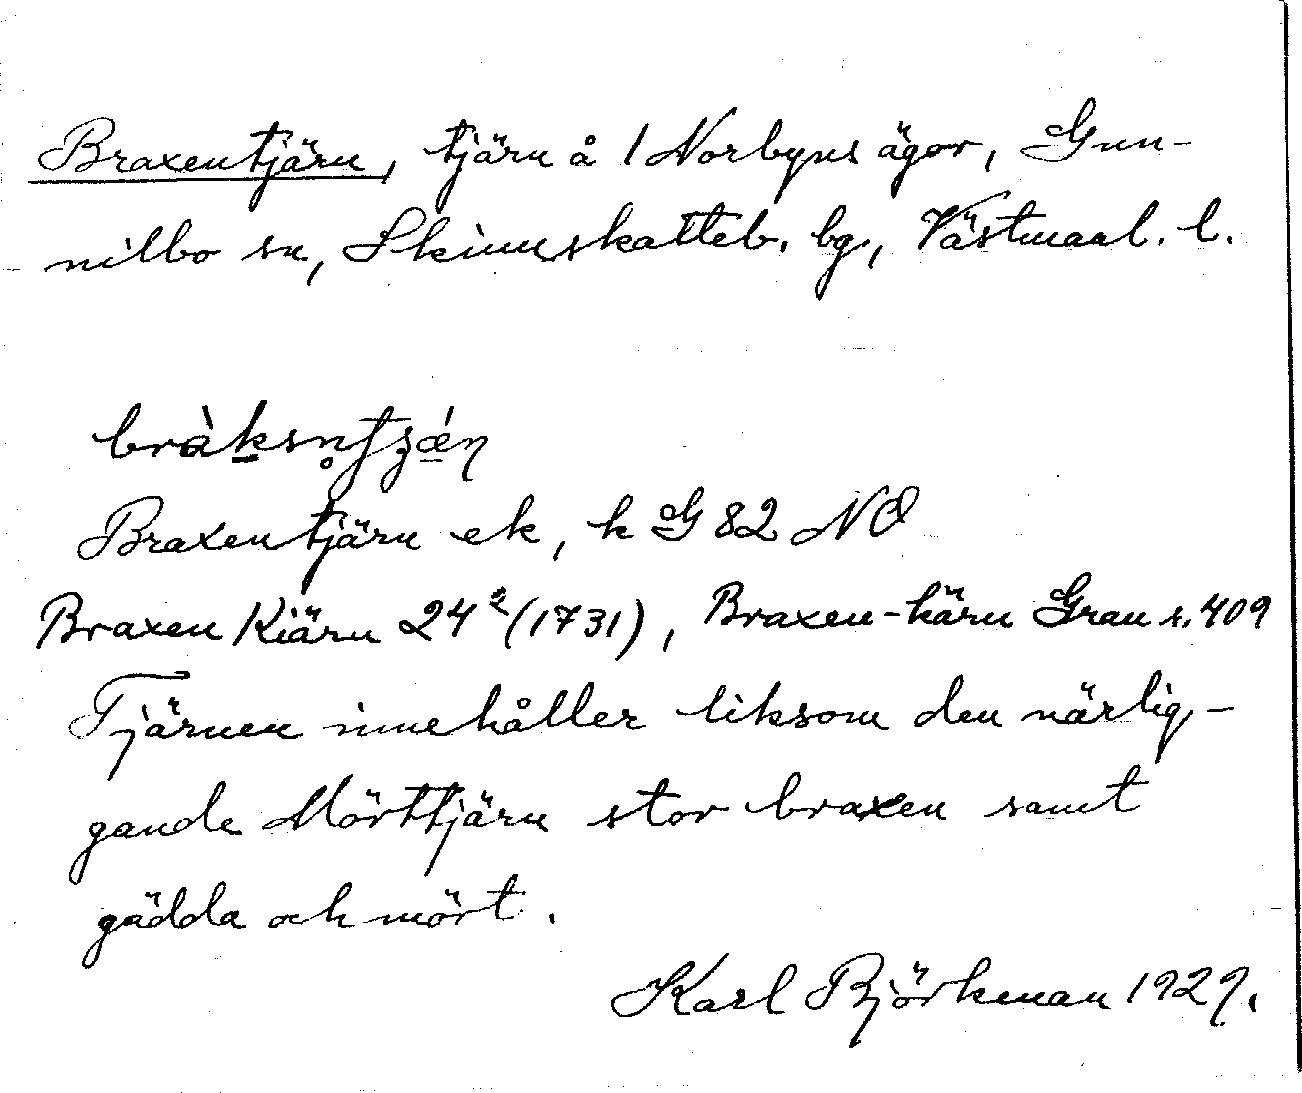 Braxentjärn, tjärn å / Norbyns ägor, Gun-
nilbo sn, Skinnskatteb. bg., Västmanl. l.
Braxentjärn ek, k G 82 NO
Braxen Kiärn 24² (1731), Braxen-kärn Grau s. 409
Tjärnen innehåller liksom den närlig-
gande Mörttjärn stor braxen samt
gädda och mört.
Karl Björkman 1929.